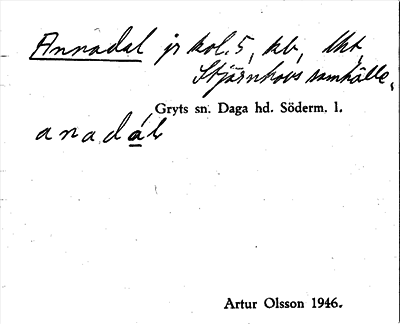 Annadal jr kol. 5, kv, Uht,
Stjärnhovs samhälle.
Gryts sn. Daga hd. Söderm. l.
anadáł
Artur Olsson 1946.